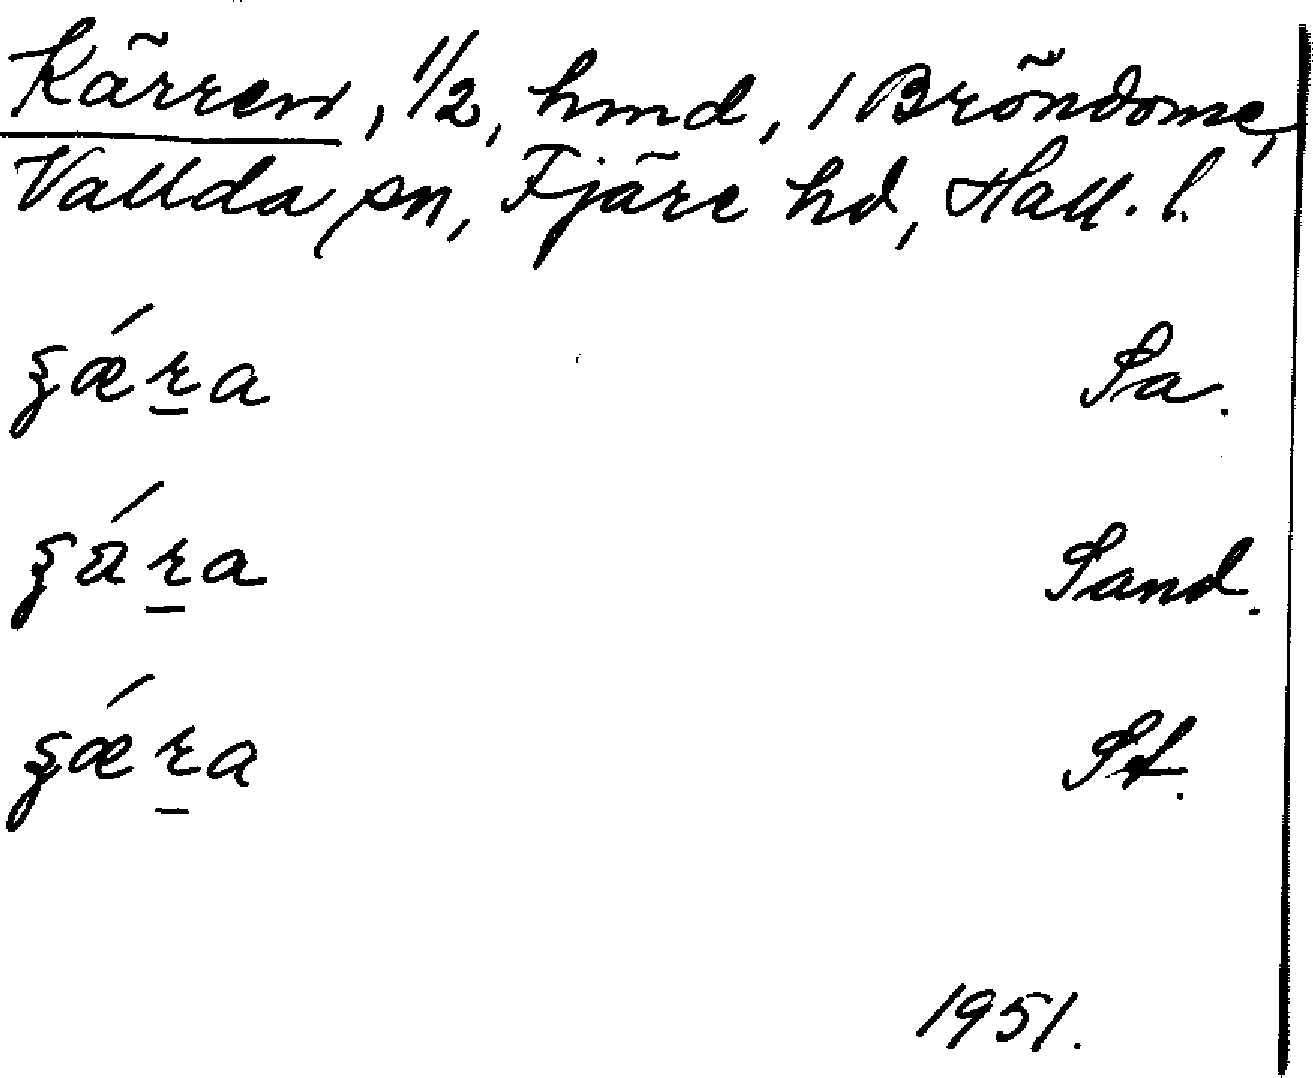 Kärren, 1/2, hmd, 1 Bröndome,
Vallda sn, Fjäre hd, Hall. l.
ʒǽr̲a Sa.
ʒár̲a Sand.
ʒǽr̲a St.
1951.